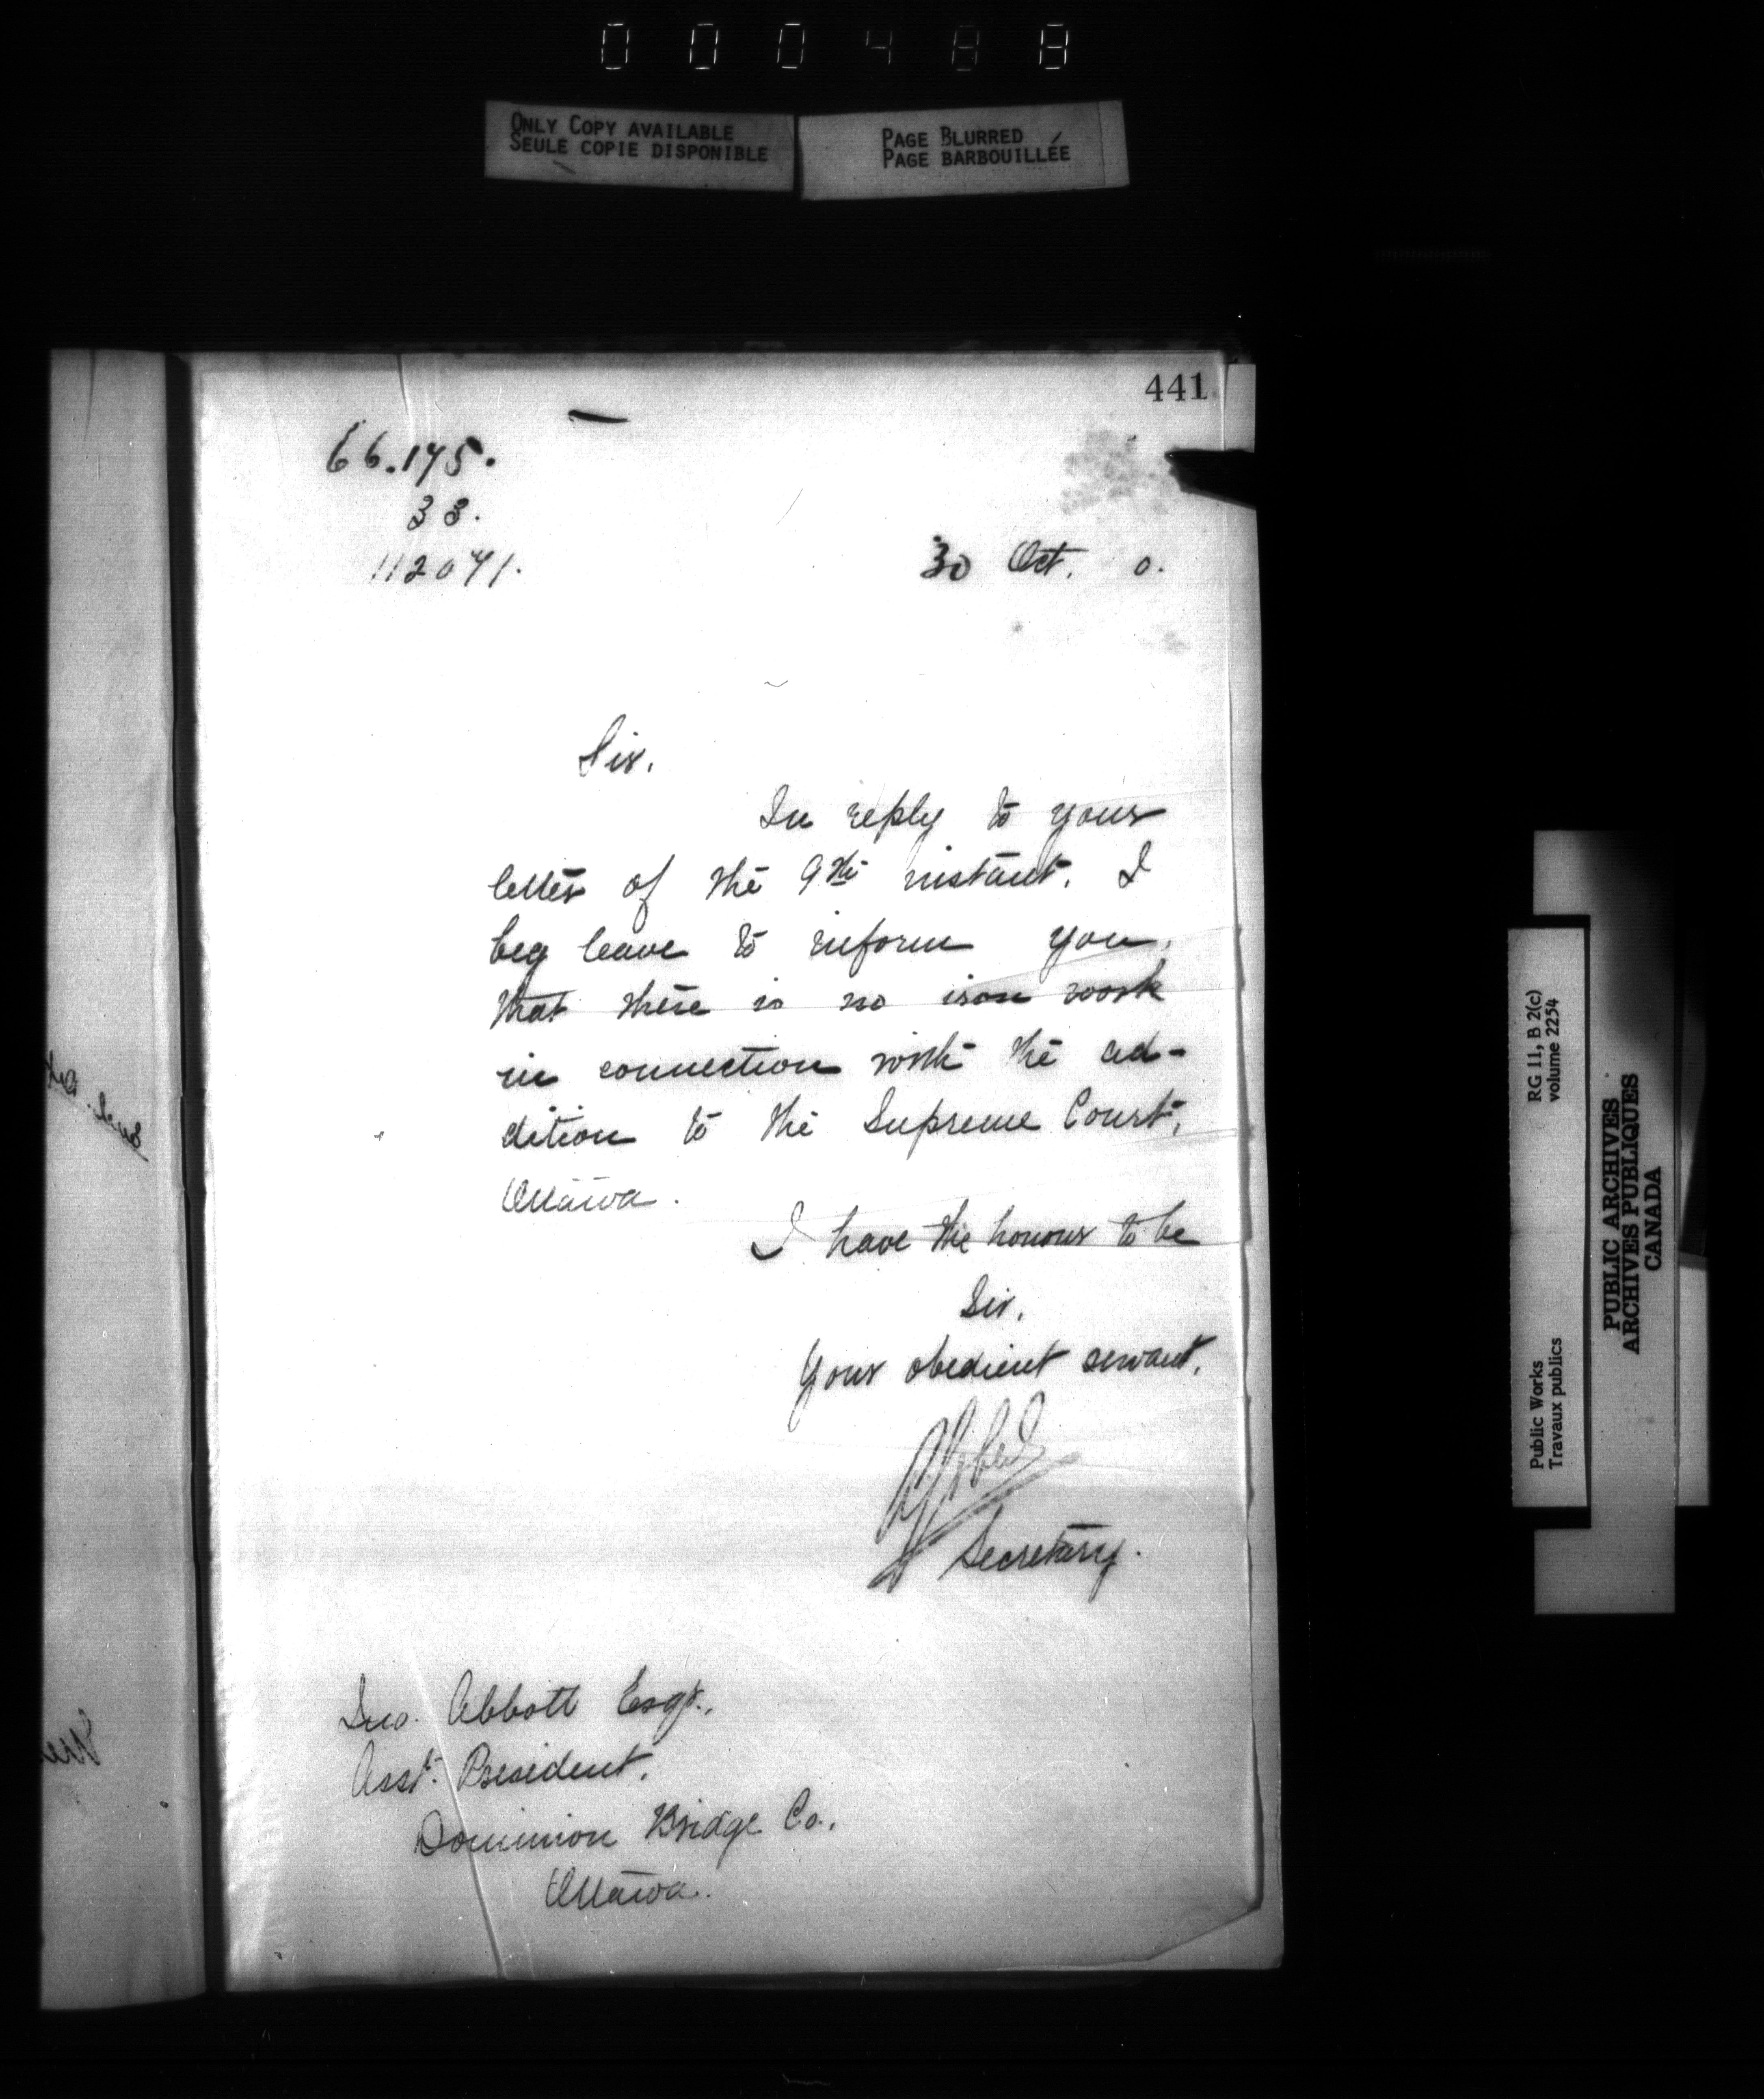 000488
ONLY COPY AVAILABLE
SEULE COPIE DISPONIBLE
PAGE BLURRED
PAGE BARBOUILLÉE
441
66.175.
33.
112071.
30 Oct. 0.
Sir,
In reply to your
letter of the 9th instant, I
beg leave to inform you,
that there is no iron work
in connection with the ad-
dition to the Supreme Court,
Ottawa.
I have the honour to be
Sir,
Your obedient servant,
Secretary.
Jno. Abbott Esqr.,
Asst. President,
Dominion Bridge Co.,
Ottawa.
RG 11, B 2(c)
volume 2254
Public Works
Travaux publics
PUBLIC ARCHIVES
ARCHIVES PUBLIQUES
CANADA